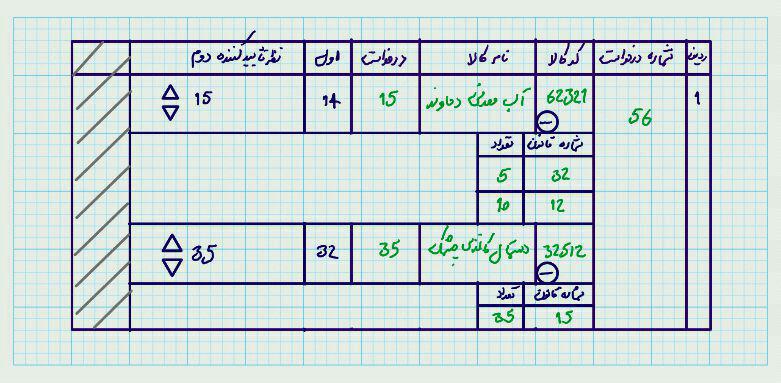 ردیف شماره درخواست کد کالا نام کالا درخواست اول نظر تایید کننده دوم
1 56 62321 آب معدنی دماوند 15 14 15
شماره قانون تعداد
32 5
12 10
32512 دستمال کاغذی 35 32 35
شماره قانون تعداد
15 35